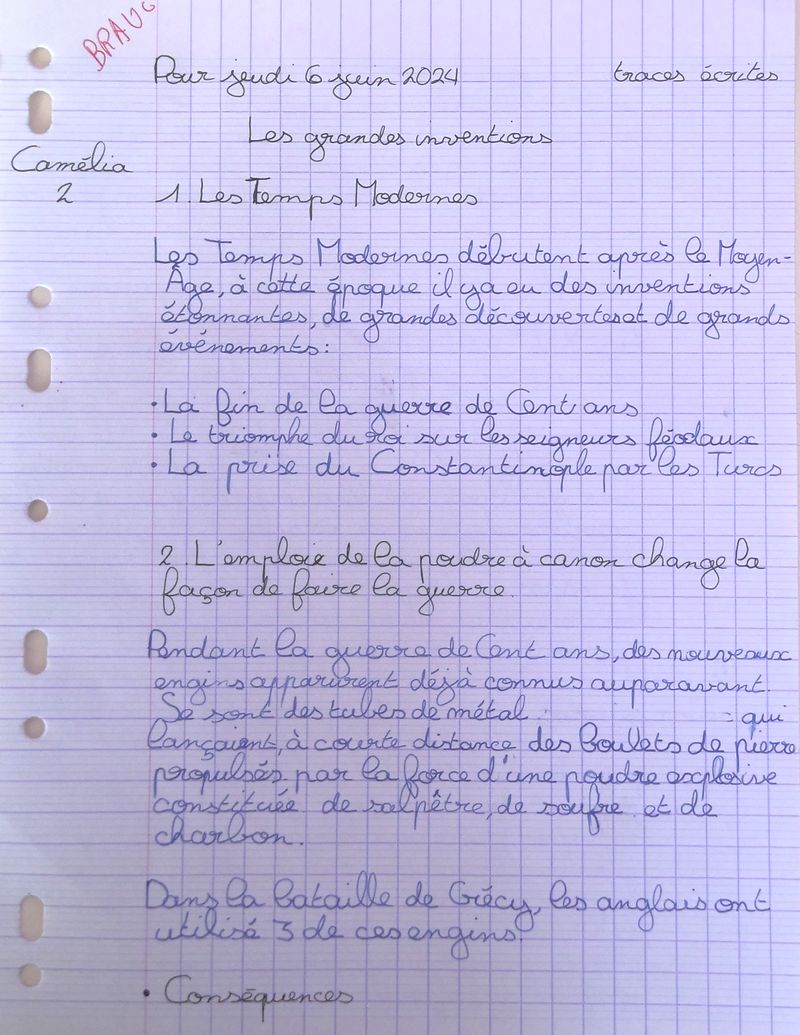 BRAVO
Pour jeudi 6 juin 2024 traces écrites
Les grandes inventions
Camélia
2
1. Les Temps Modernes
Les Temps Modernes débutent après le Moyen-
Âge, à cette époque il y a eu des inventions
étonnantes, de grandes découvertes et de grands
événements :
• La fin de la guerre de Cent ans
• Le triomphe du roi sur les seigneurs féodaux
• La prise du Constantinople par les Turcs
2. L'emploie de la poudre à canon change la
façon de faire la guerre.
Pendant la guerre de Cent ans, des nouveaux
engins apparurent déjà connus auparavant.
Se sont des tubes de métal qui
lançaient, à courte distance des boulets de pierre
propulsés par la force d'une poudre explosive
constituée de salpêtre, de soufre et de
charbon.
Dans la bataille de Crécy, les anglais ont
utilisé 3 de ces engins.
• Conséquences